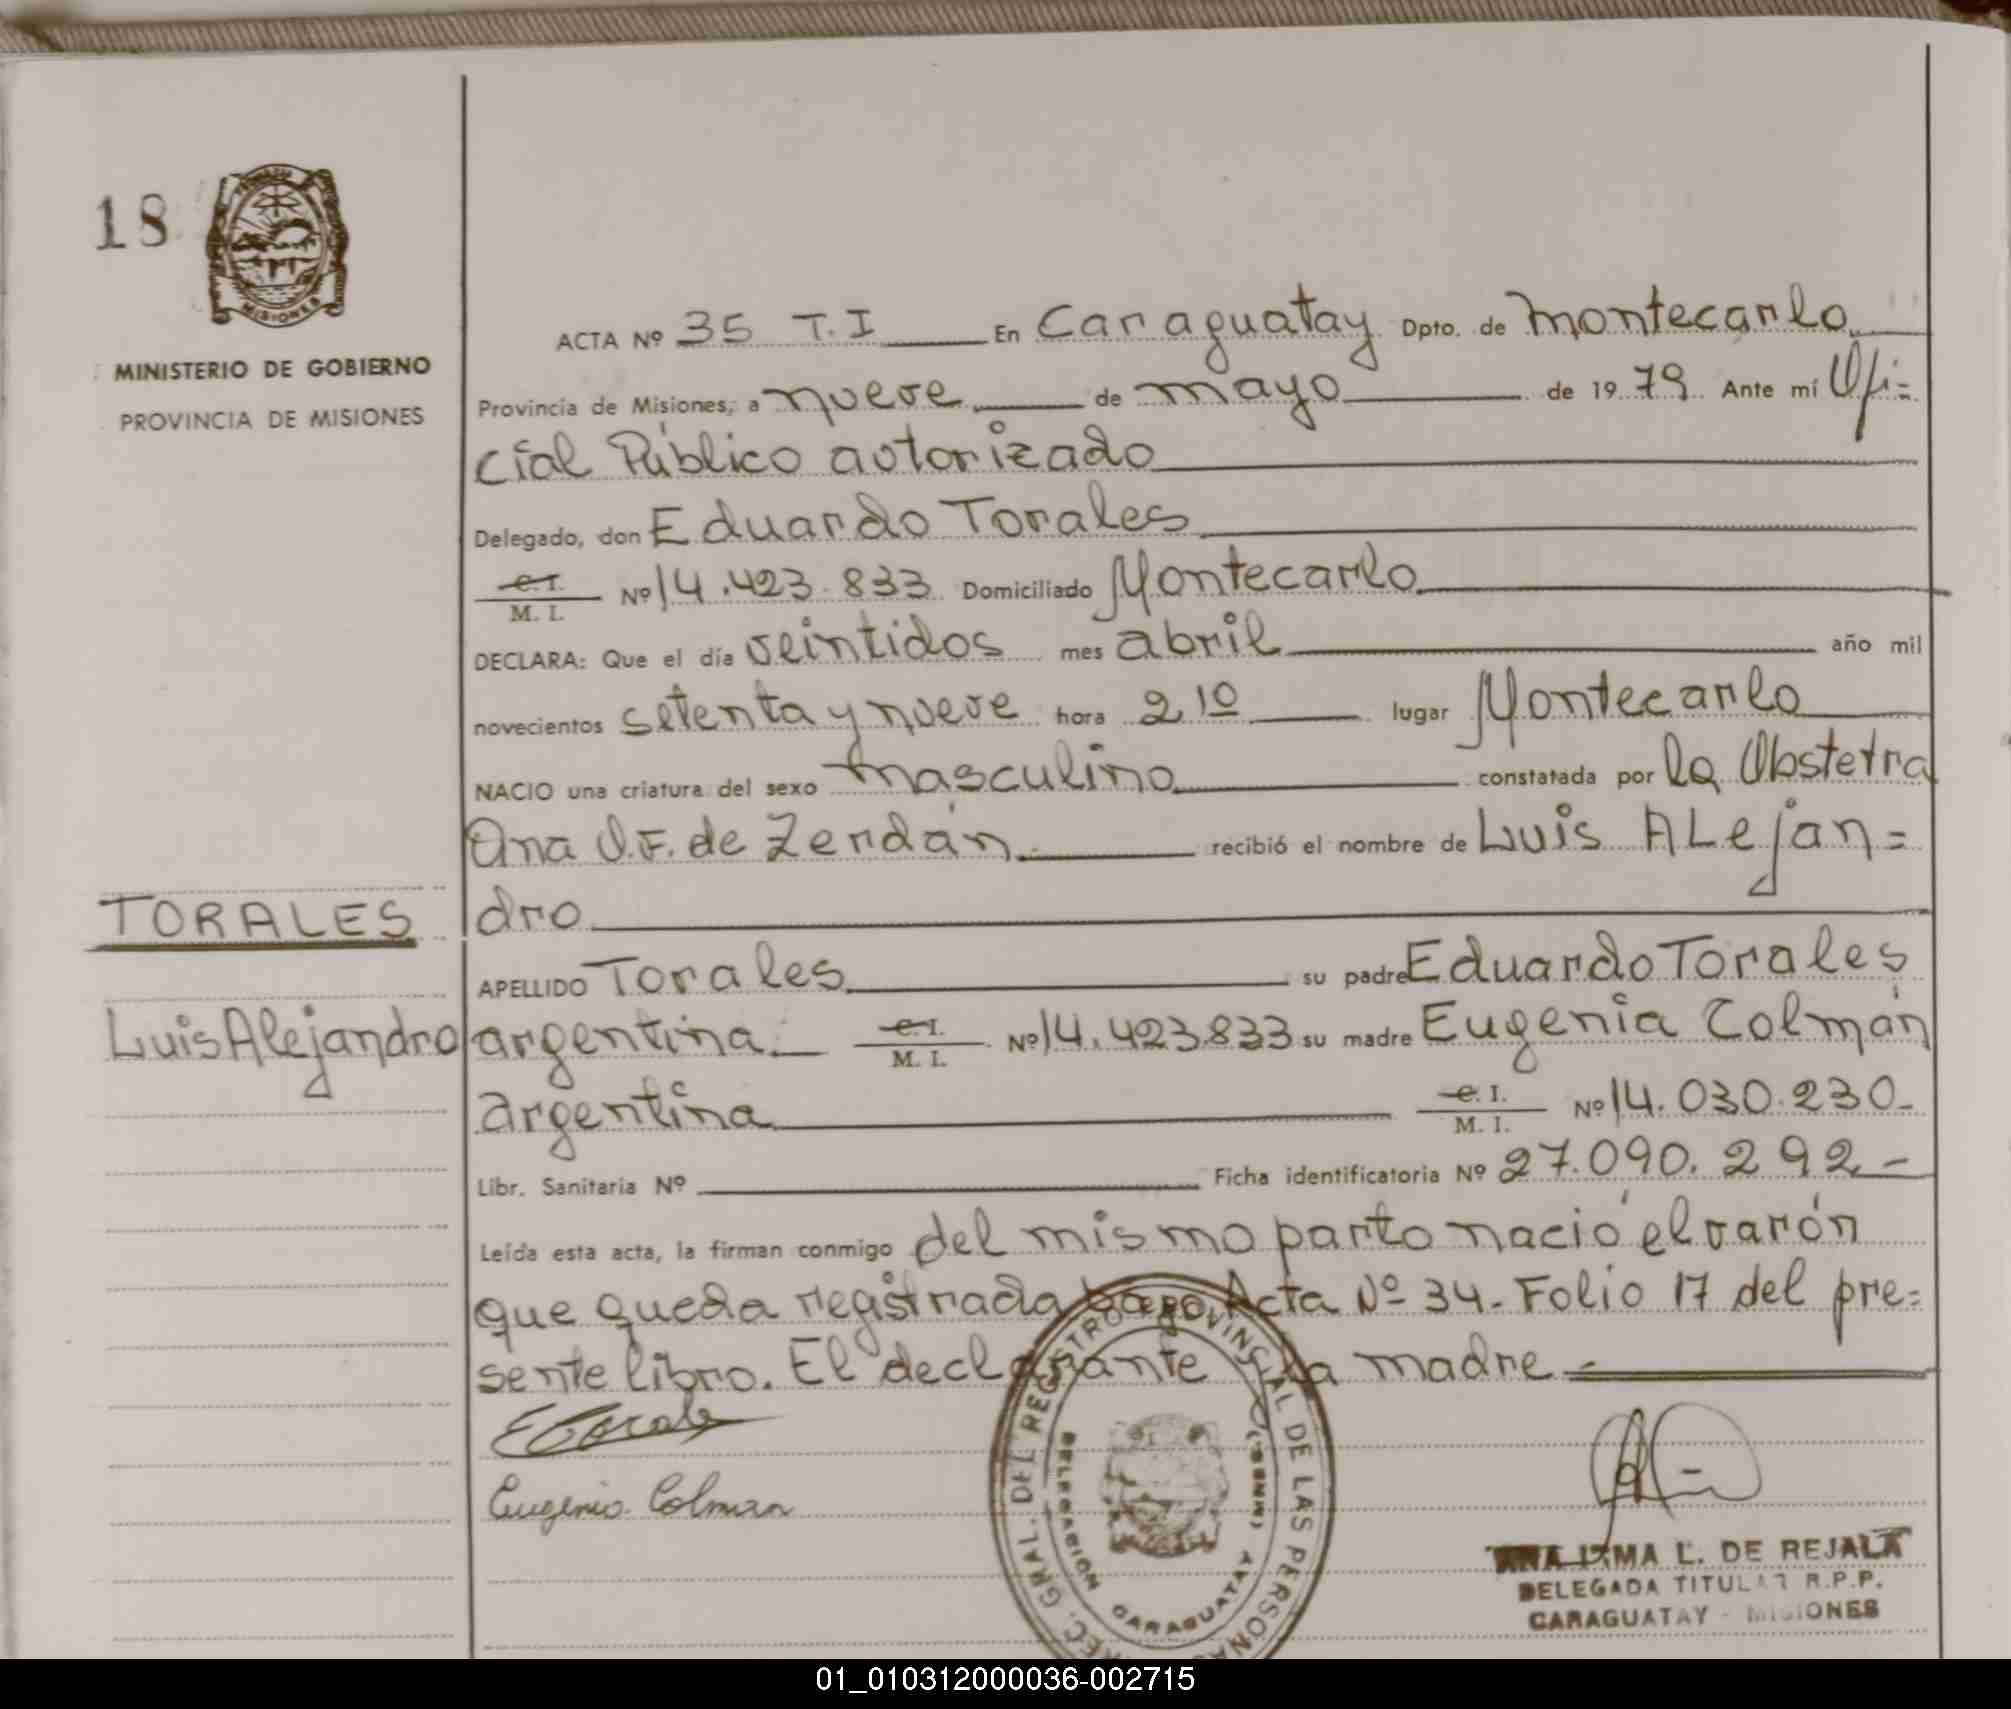 18
MISIONES
MINISTERIO DE GOBIERNO
PROVINCIA DE MISIONES
ACTA Nº 35 T.I En Caraguatay Dpto. de Montecarlo
Provincia de Misiones, a nueve de mayo de 1979. Ante mí Ofi=
cial Público autorizado
Delegado, don Eduardo Torales
C.I. M. I. Nº 14.423.833 Domiciliado Montecarlo
DECLARA: Que el día veintidos mes abril año mil
novecientos setenta y nueve hora 2,10 lugar Montecarlo
NACIO una criatura del sexo masculino constatada por la Obstetra
Ana O.F. de Zerdán recibió el nombre de Luis ALejan=
dro
TORALES
APELLIDO Torales su padre Eduardo Torales
Luis Alejandro
argentina C.I. M. I. Nº 14.423.833 su madre Eugenia Colmán
argentina C.I. M. I. Nº 14.030.230-
Libr. Sanitaria Nº Ficha identificatoria Nº 27.090.292-
Leída esta acta, la firman conmigo del mismo parto nació el varón
que queda registrada bajo Acta Nº 34-Folio 17 del pre=
sente libro. El declarante y la madre-
E Torales
Eugenia Colman
DIREC. GRAL. DEL REGISTRO PROVINCIAL DE LAS PERSONAS
DELEGACION CARAGUATAY (MISIONES)
ANA IRMA L. DE REJALA
DELEGADA TITULAR R.P.P.
CARAGUATAY - MISIONES
01_010312000036-002715